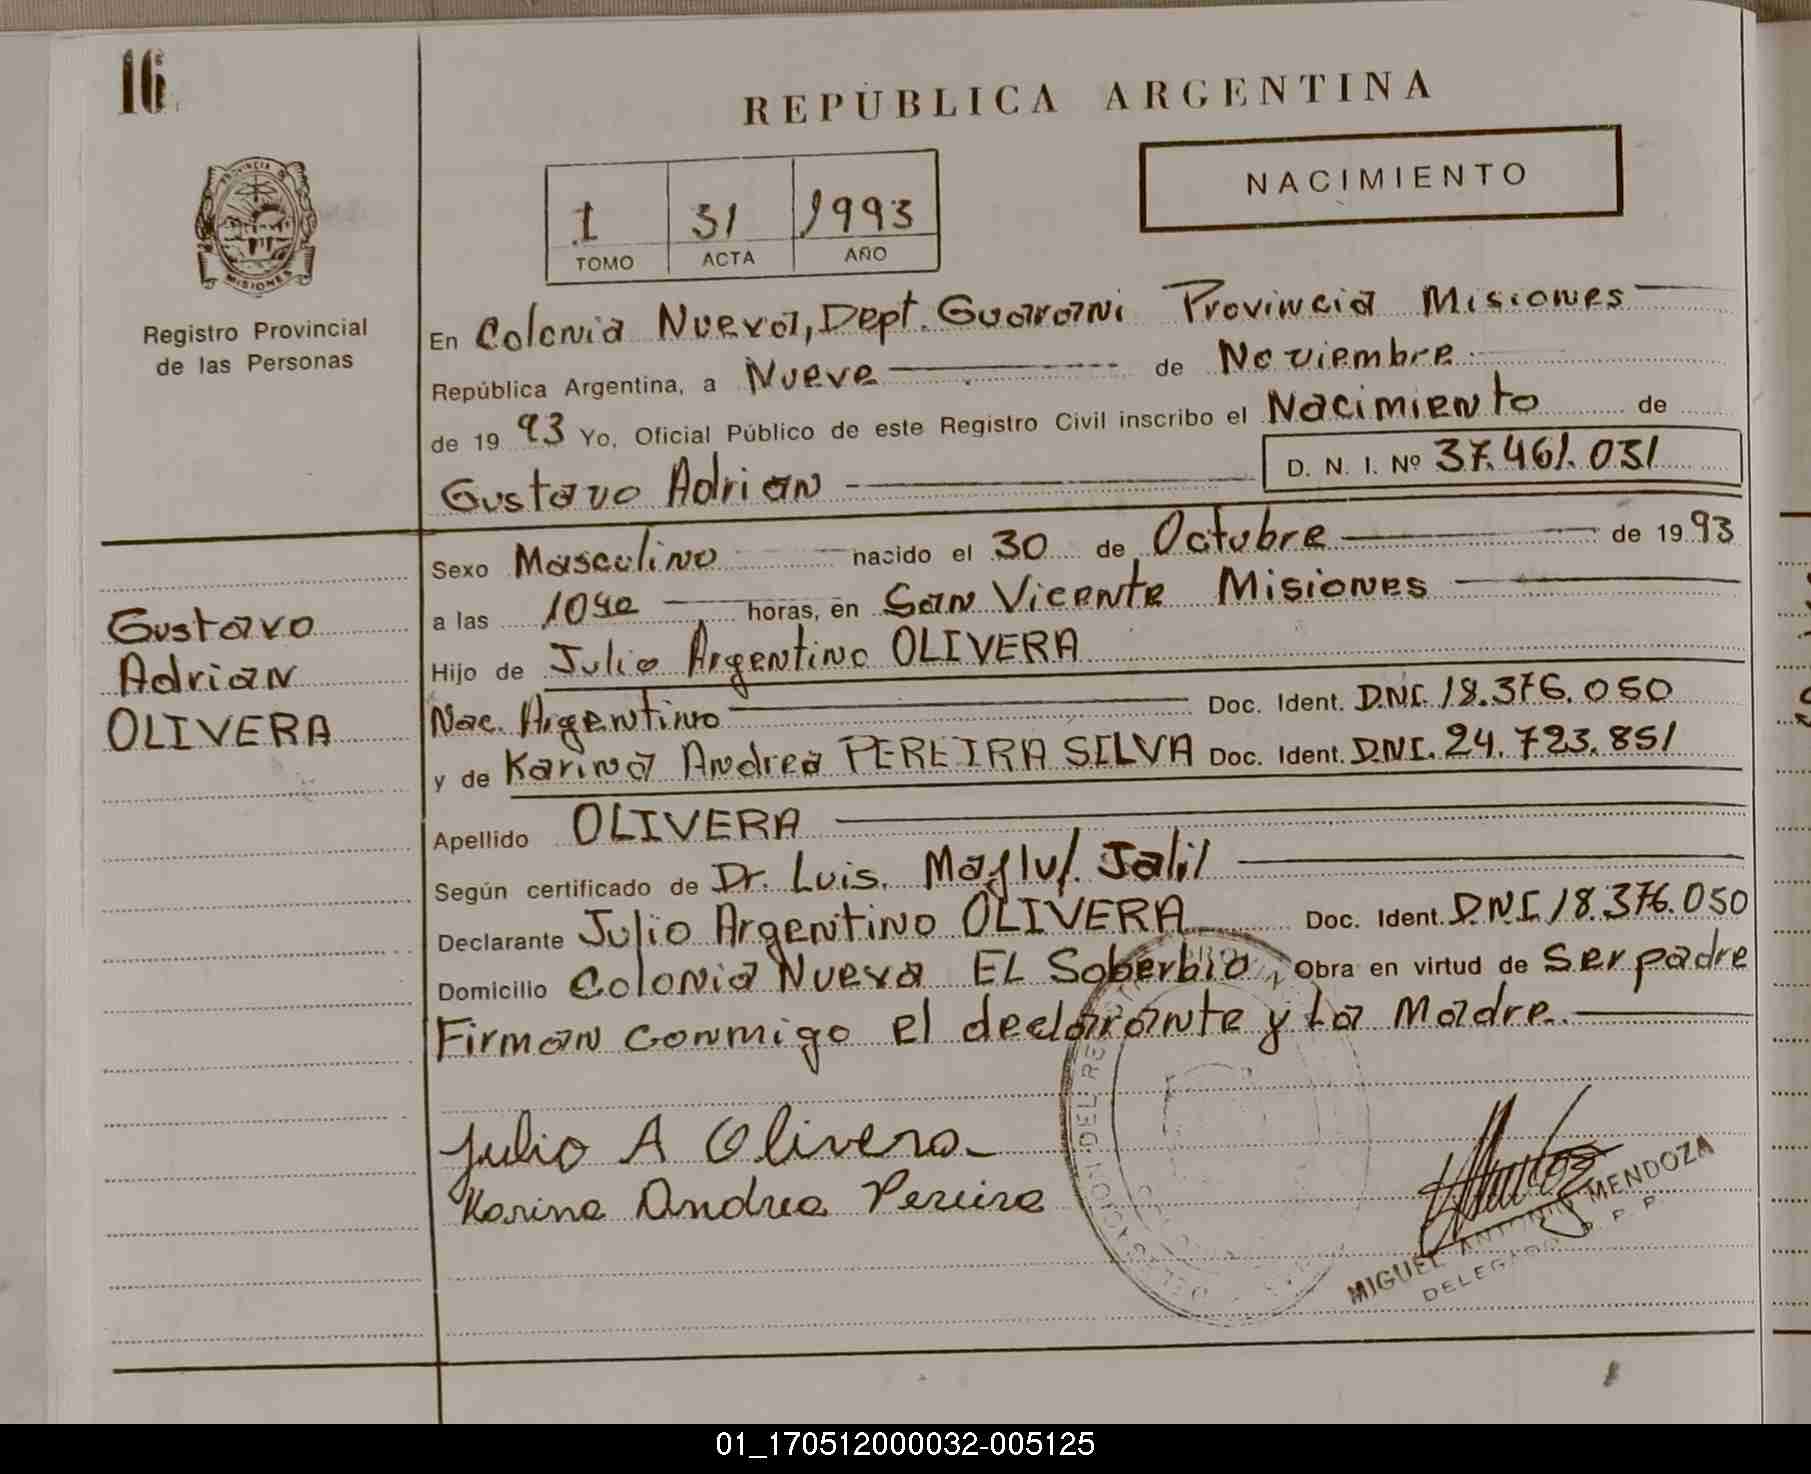 16
REPÚBLICA ARGENTINA
NACIMIENTO
1 31 1993
TOMO ACTA AÑO
PROVINCIA DE
MISIONES
Registro Provincial
de las Personas
En Colonia Nueva, Dept. Guarani Provincia Misiones
República Argentina, a Nueve de Noviembre
de 19 93 Yo, Oficial Público de este Registro Civil inscribo el Nacimiento de
Gustavo Adrian D. N. I. Nº 37.461.031
Sexo Masculino nacido el 30 de Octubre de 19 93
a las 1040 horas, en San Vicente Misiones
Hijo de Julio Argentino OLIVERA
Nac. Argentino Doc. Ident. DNI. 18.376.050
y de Karina Andrea PEREIRA SILVA Doc. Ident. DNI. 24.723.851
Apellido OLIVERA
Según certificado de Dr. Luis. Jalil
Declarante Julio Argentino OLIVERA Doc. Ident. DNI 18.376.050
Domicilio Colonia Nueva EL Soberbio Obra en virtud de ser padre
Firman conmigo el declarante y La Madre.
Gustavo
Adrian
OLIVERA
Julio A Olivera
Karina Andrea Pereira
DEL
MIGUEL ANTONIO MENDOZA
DELEGADO R. P. P.
01_170512000032-005125